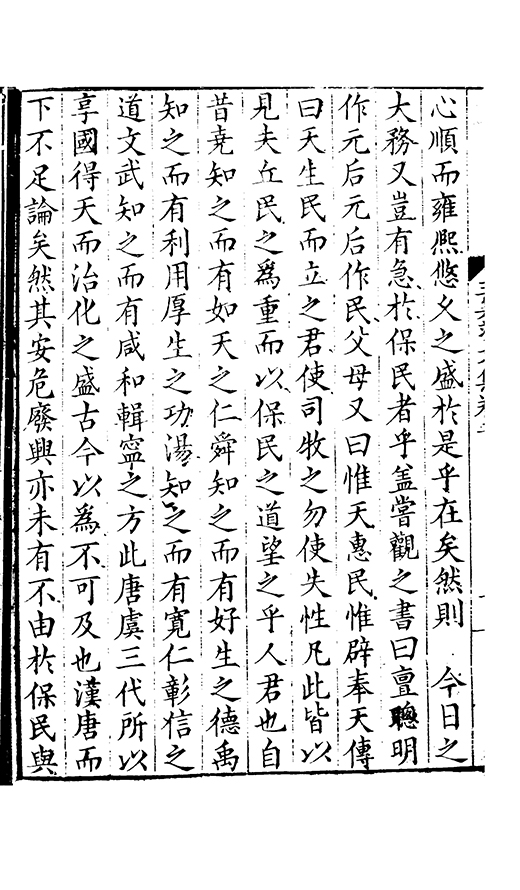 心順而雍熈悠久之盛於是乎在矣然則　今日之
大務又豈有急於保民者乎盖嘗觀之書曰亶聰明
作元后元后作民父母又曰惟天惠民惟辟奉天傳
曰天生民而立之君使司牧之勿使失性凡此皆以
見夫丘民之爲重而以保民之道望之乎人君也自
昔堯知之而有如天之仁舜知之而有好生之德禹
知之而有利用厚生之功湯知之而有寛仁彰信之
道文武知之而有咸和輯寧之方此唐虞三代所以
享國得天而治化之盛古今以為不可及也漢唐而
下不足論矣然其安危廢興亦未有不由於保民與